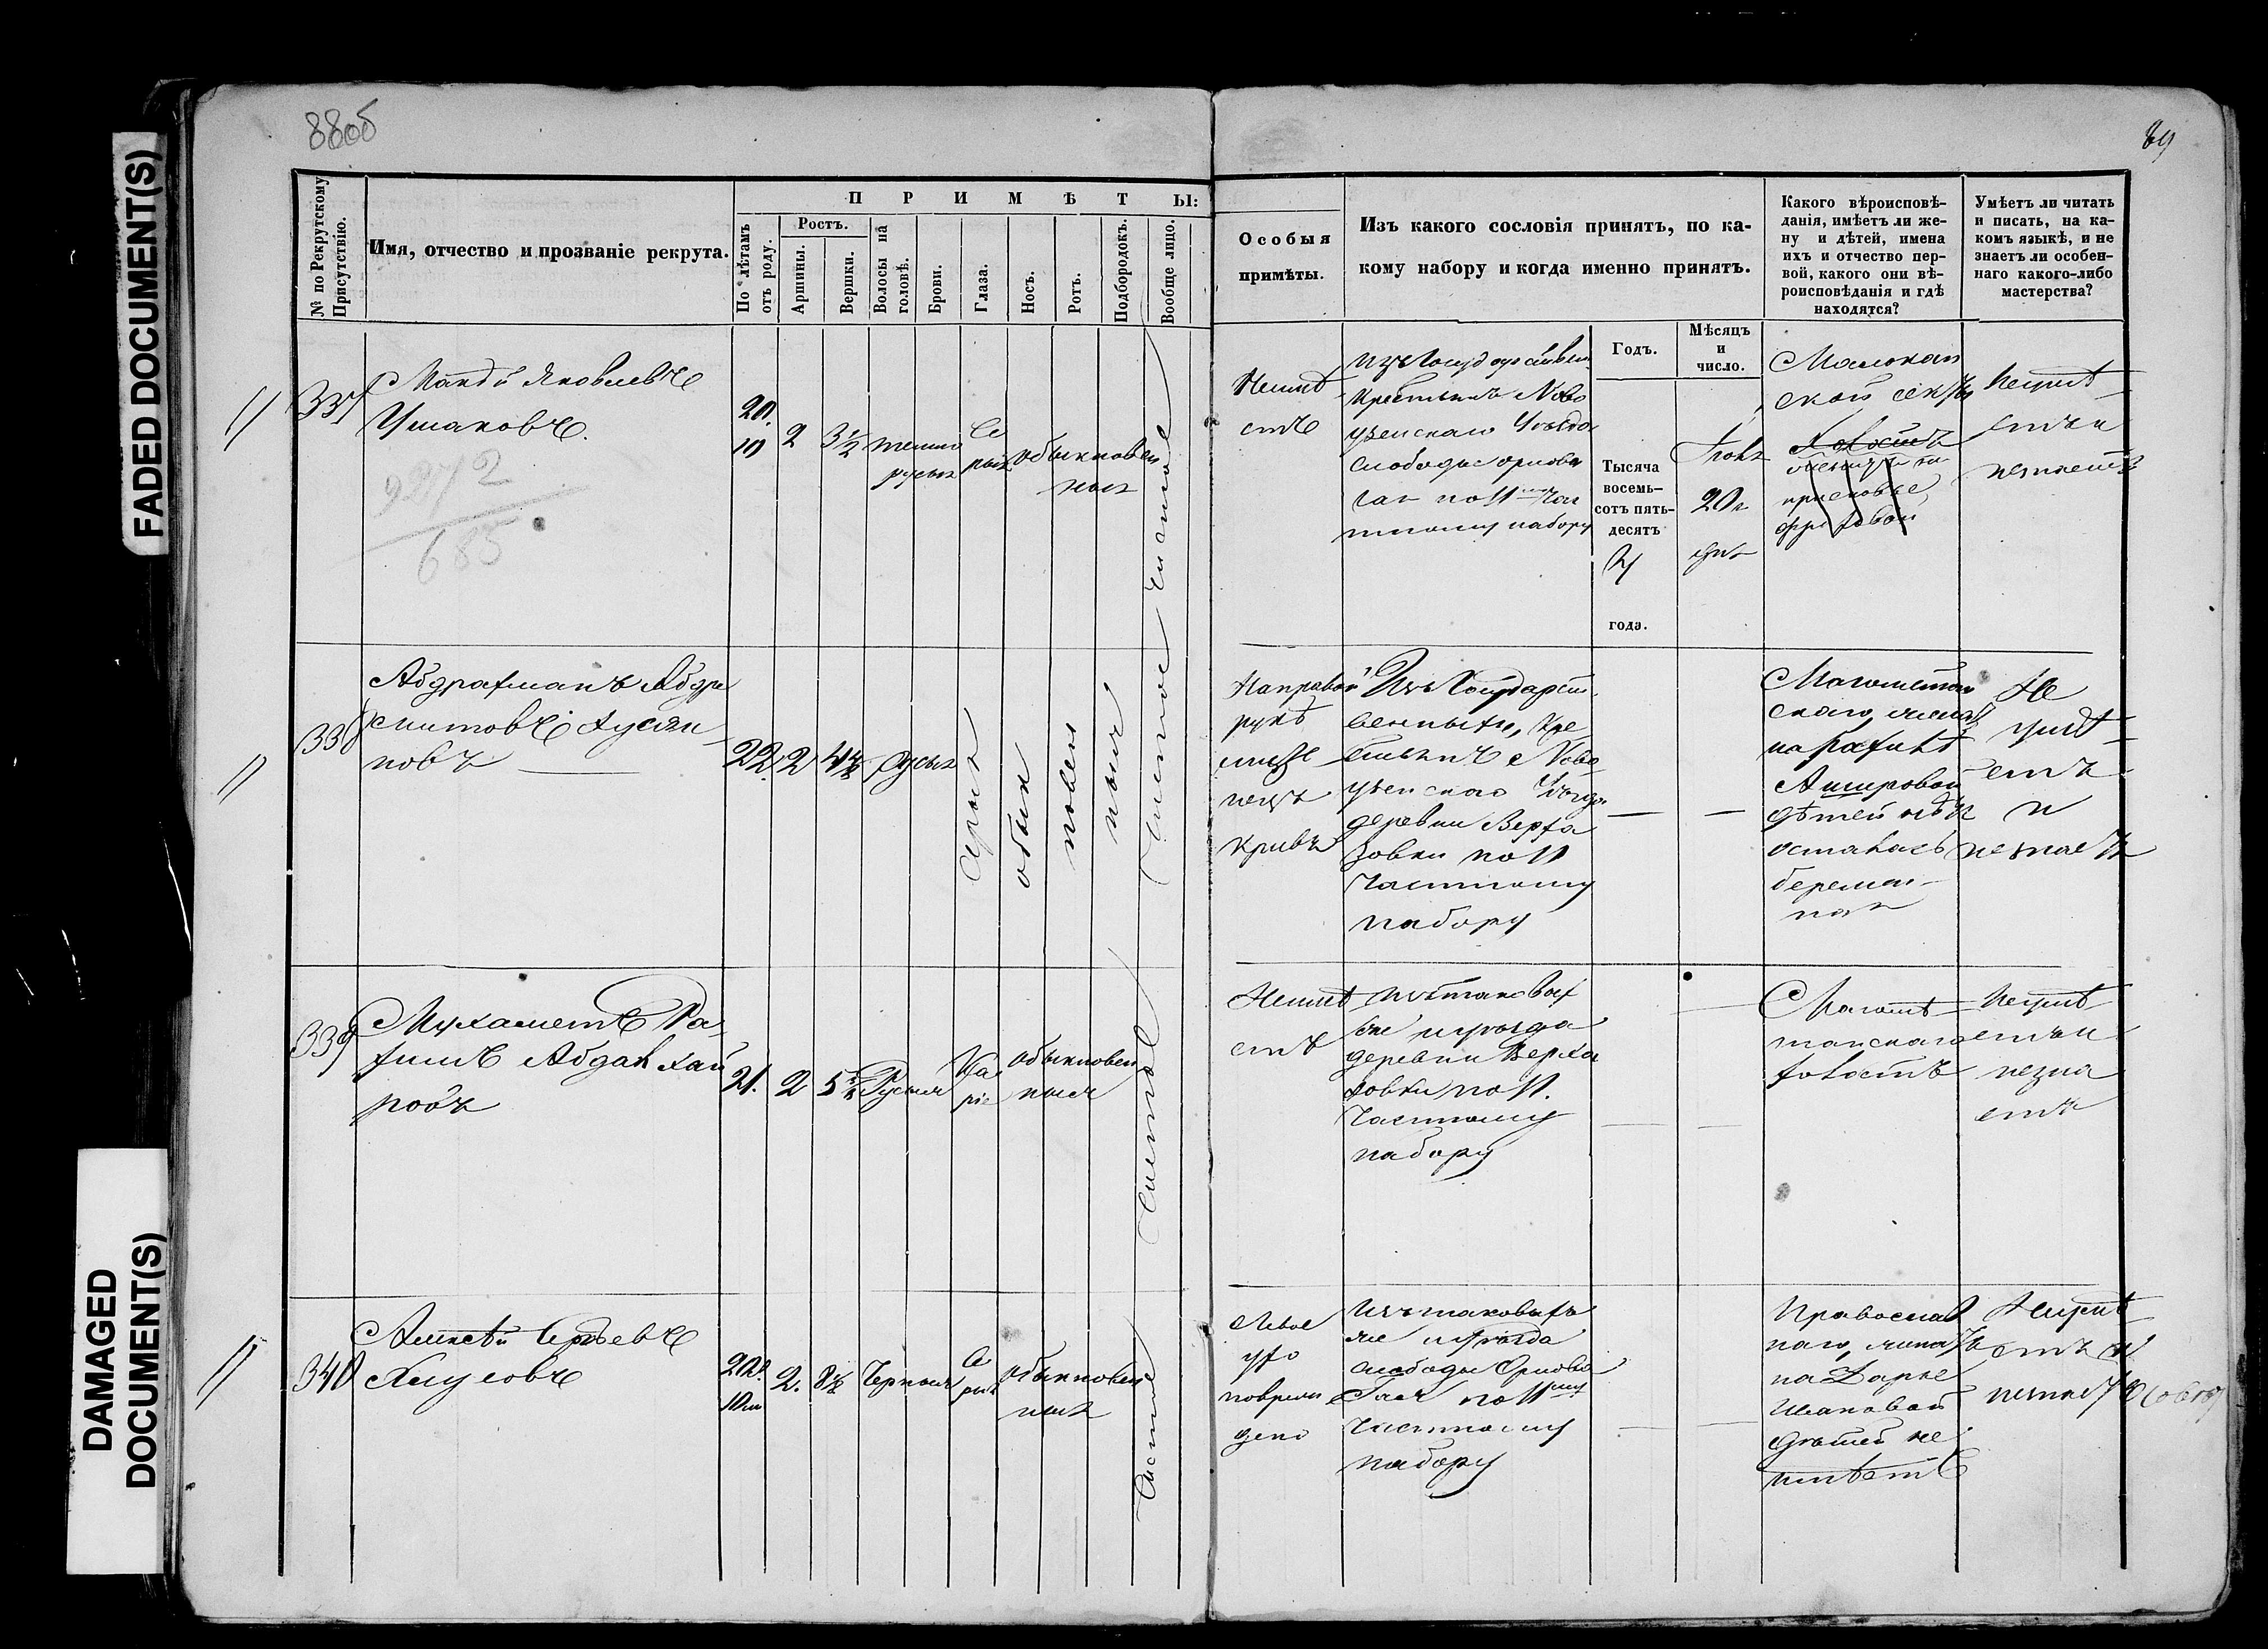 FADED DOCUMENT(S)
DAMAGED
DOCUMENT(S)
88об
89
№ по Рекрутскому
Присутствію.
Имя, отчество и прозваніе рекрута.
П Р И М Ѣ Т Ы:
По лѣтамъ
отъ роду.
Ростъ.
Аршины.
Вершки.
Волосы на
головѣ.
Брови.
Глаза.
Носъ.
Ротъ.
Подбородокъ.
Вообще лицо.
Особыя
примѣты.
Изъ какого сословія принятъ, по ка-
кому набору и когда именно принятъ.
Какого вѣроисповѣ-
данія, имѣетъ ли же-
ну и дѣтей, имена
ихъ и отчество пер-
вой, какого они вѣ-
роисповѣданія и гдѣ
находятся?
Умѣетъ ли читать
и писать, на ка-
комъ языкѣ, и не
знаетъ ли особен-
наго какого-либо
мастерства?
Годъ.
Мѣсяцъ
и
число.
Тысяча
восемь-
сотъ пять-
десятъ
4
года.
337
Яковлевъ
Ушаковъ.
9272
685
20.
10
2
3½
темно
русые
Се
рые
обыкновен
ные
чистое
Неимѣ
етъ
изъ Государствен
Крестьянъ Ново
узенскаго Уѣзда
слободы Орлова
гая по 11
тному набору
Іюня
20
дня
Малокан
ской секты
Холостъ
Неумѣ
етъ и
незнаетъ
338
Абдрахманъ Абдре
шитовъ Хусяи
новъ
22.
2
4½
русые
Серые
обык
новен
ные
Чистое
На правой
рукѣ
мизи
нецъ
кривъ
Изъ Государст
венныхъ, Кре
стьянъ Ново
узенскаго Уѣзда
деревни Верха
зовки по 11
Частному
набору
Магометан
скаго, женатъ
на
Амировой
дѣтей нѣтъ
осталась
беремен
ная
Не
умѣ
етъ
и
незнаетъ
339
Мухаметъ Ра
химъ Абдал Хаи
ровъ
21.
2
5½
Русые
Ка
ріе
обыкновен
ные
Чистое
Неимѣ
етъ
изъ таковых
же и уѣзда
деревни Верха
зовки по 11.
Частному
набору
Магоме
танскаго
холостъ
Неумѣ
етъ и
незна
етъ
340
Алексѣй Сергѣевъ
20.
10м
2.
8½
Черные
Се
рые
обыкновен
ные
Чистое
Левое
ухо
повреж
дено
Изъ таковыхъ
же и уѣзда
слободы Орлова
Гая по 11му
Частному
набору
Православ
наго, женатъ
на Дарье
Ивановой
дѣтей не
имѣетъ
Неумѣ
етъ и
незнаетъ